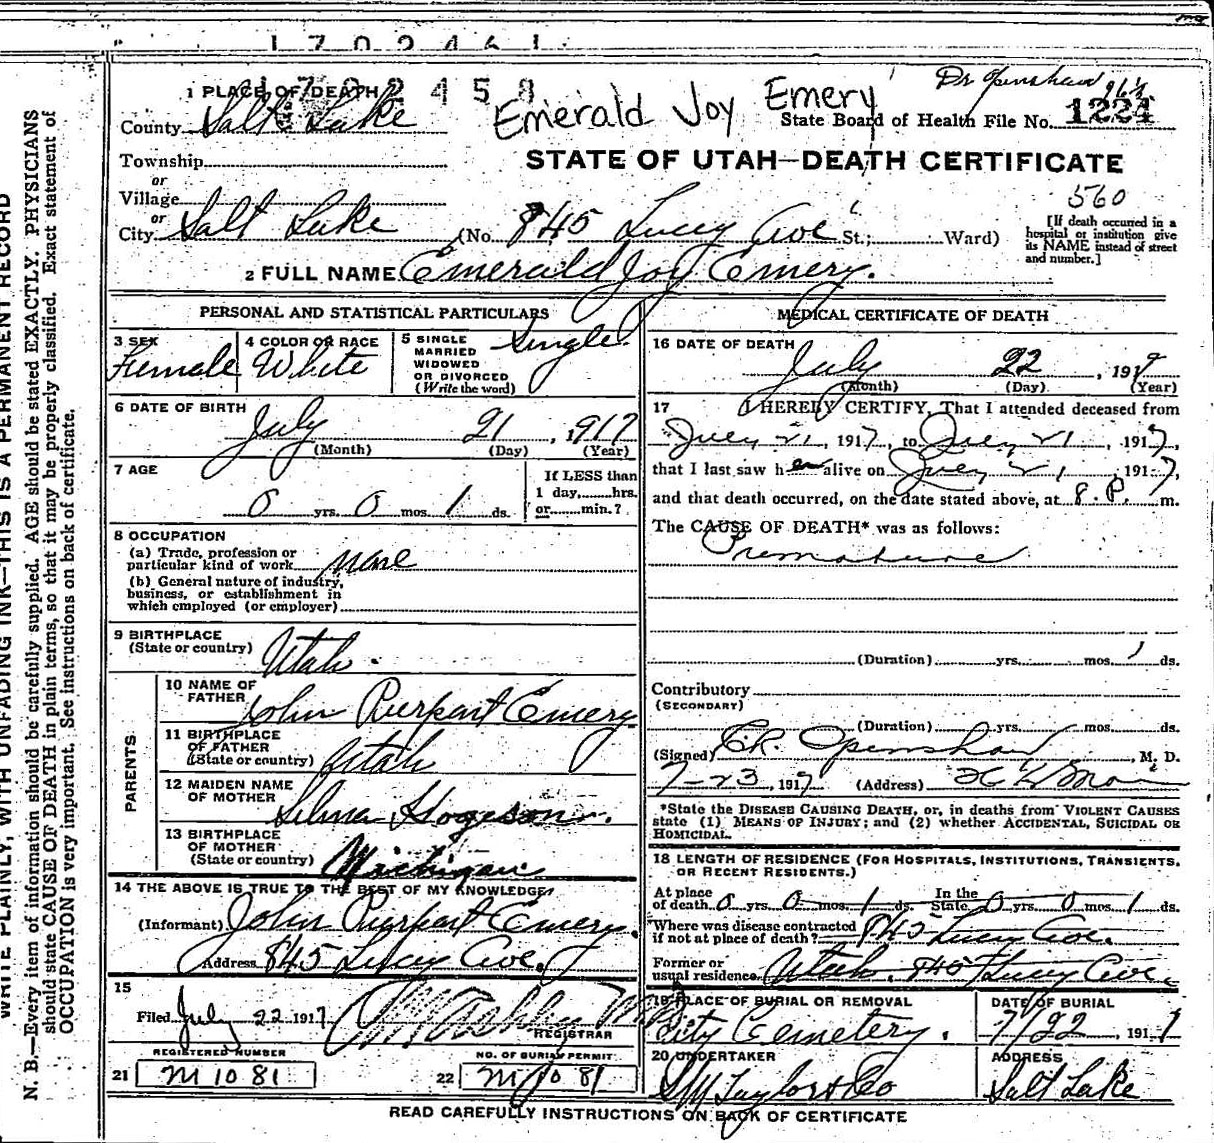 1702461
1 PLACE OF DEATH 1702458
Dr Openshaw 96 1/2
Emerald Joy Emery
County Salt Lake
State Board of Health File No. 1224
Township
STATE OF UTAH—DEATH CERTIFICATE
or
Village
560
or
City Salt Lake (No. 845 Lucy Ave St.; Ward)
[If death occurred in a hospital or institution give its NAME instead of street and number.]
2 FULL NAME Emerald Joy Emery.
PERSONAL AND STATISTICAL PARTICULARS
3 SEX Female
4 COLOR OR RACE White
5 SINGLE MARRIED WIDOWED OR DIVORCED (Write the word) Single
6 DATE OF BIRTH
July 21, 1917
(Month) (Day) (Year)
7 AGE
0 yrs. 0 mos. 1 ds.
If LESS than 1 day, hrs. or min.?
8 OCCUPATION
(a) Trade, profession or particular kind of work None
(b) General nature of industry, business, or establishment in which employed (or employer)
9 BIRTHPLACE
(State or country) Utah.
PARENTS
10 NAME OF FATHER John Pierpart Emery
11 BIRTHPLACE OF FATHER (State or country) Utah
12 MAIDEN NAME OF MOTHER Selma Hogeson.
13 BIRTHPLACE OF MOTHER (State or country) Michigan
14 THE ABOVE IS TRUE TO THE BEST OF MY KNOWLEDGE
(Informant) John Pierpart Emery.
Address 845 Lucy Ave.
15
Filed July 22 1917
REGISTRAR
REGISTERED NUMBER
21 M 1081
NO. OF BURIAL PERMIT
22 M 1081
MEDICAL CERTIFICATE OF DEATH
16 DATE OF DEATH
July 22, 1917
(Month) (Day) (Year)
17 I HEREBY CERTIFY, That I attended deceased from
July 21, 1917, to July 21, 1917,
that I last saw her alive on July 21, 1917,
and that death occurred, on the date stated above, at 8. P. m.
The CAUSE OF DEATH* was as follows:
Premature
(Duration) yrs. mos. 1 ds.
Contributory
(SECONDARY)
(Duration) yrs. mos. ds.
(Signed) E.R. Openshaw, M. D.
7-23, 1917 (Address)
*State the DISEASE CAUSING DEATH, or, in deaths from VIOLENT CAUSES
state (1) MEANS OF INJURY; and (2) whether ACCIDENTAL, SUICIDAL OR
HOMICIDAL.
18 LENGTH OF RESIDENCE (FOR HOSPITALS, INSTITUTIONS, TRANSIENTS,
OR RECENT RESIDENTS.)
At place of death 0 yrs. 0 mos. 1 ds. In the State 0 yrs. 0 mos. 1 ds.
Where was disease contracted if not at place of death? 845 Lucy Ave.
Former or usual residence Utah. 845 Lucy Ave.
19 PLACE OF BURIAL OR REMOVAL
City Cemetery.
DATE OF BURIAL
7/22, 1917
20 UNDERTAKER
S M Taylor & Co
ADDRESS
Salt Lake
READ CAREFULLY INSTRUCTIONS ON BACK OF CERTIFICATE
WRITE PLAINLY, WITH UNFADING INK—THIS IS A PERMANENT RECORD
N. B.—Every item of information should be carefully supplied. AGE should be stated EXACTLY. PHYSICIANS
should state CAUSE OF DEATH in plain terms, so that it may be properly classified. Exact statement of
OCCUPATION is very important. See instructions on back of certificate.